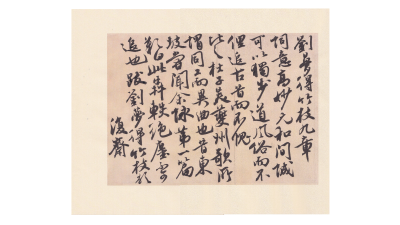 劉夢得竹枝九章
詞意高妙元和間誠
可以獨步道風俗而不
俚追古昔而不愧
比之杜子美夔州歌所
謂同工而異曲也昔東
坡嘗聞余詠第一篇
歎曰此犇軼絕塵不可
追也跋劉夢得竹枝歌
復齋